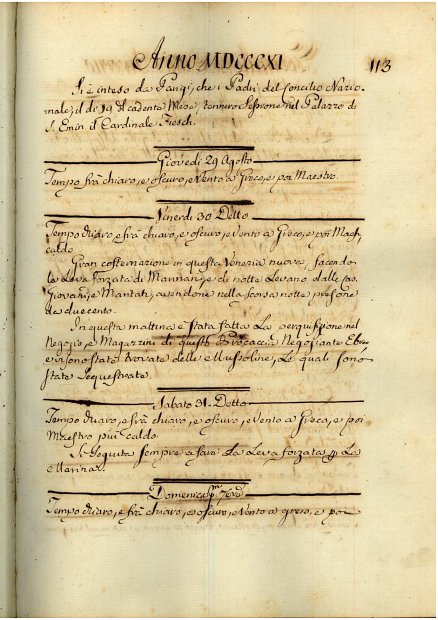 Anno MDCCCXI
113
Si è inteso da Parigi, che i Padri del Concilio Nazio-
nale, il dì 19 del cadente Mese, tennero Sessione nel Palazzo di
S. Emin. il Cardinale Fiesch.
Giovedì 29 Agosto
Tempo frà chiaro, e oscuro, e Vento a Greco, e poi Maestro.
Venerdì 30 Detto
Tempo chiaro, e frà chiaro, e oscuro, e vento a Greco, e poi
caldo
Gran costernazione in questa Venezia nuova, facendo
la Leva Forzata di Marinari, e di notte Levano dalle
Giovani, e Mantati, avendone nella scorsa notte
da duecento.
In questa mattina è stata fatta La perquisizione nel
Negozio, e Magazzini di questo Procaccia Negoziante
e vi sono state trovate delle Mussoline, Le quali sono
state sequestrate.
Sabato 31. Detto
Tempo chiaro, e frà chiaro, e oscuro, e vento a Greco, e poi
Maestro più caldo
Si seguita sempre a fare La Leva forzata La
Marina.
Domenica
Tempo chiaro, e frà chiaro, e oscuro, e Vento a greco, e poi